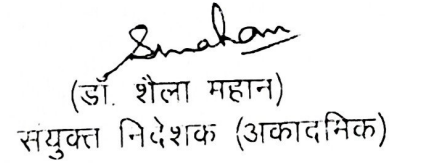 Smahan
(डॉ. शैला महान)
संयुक्त निदेशक (अकादमिक)